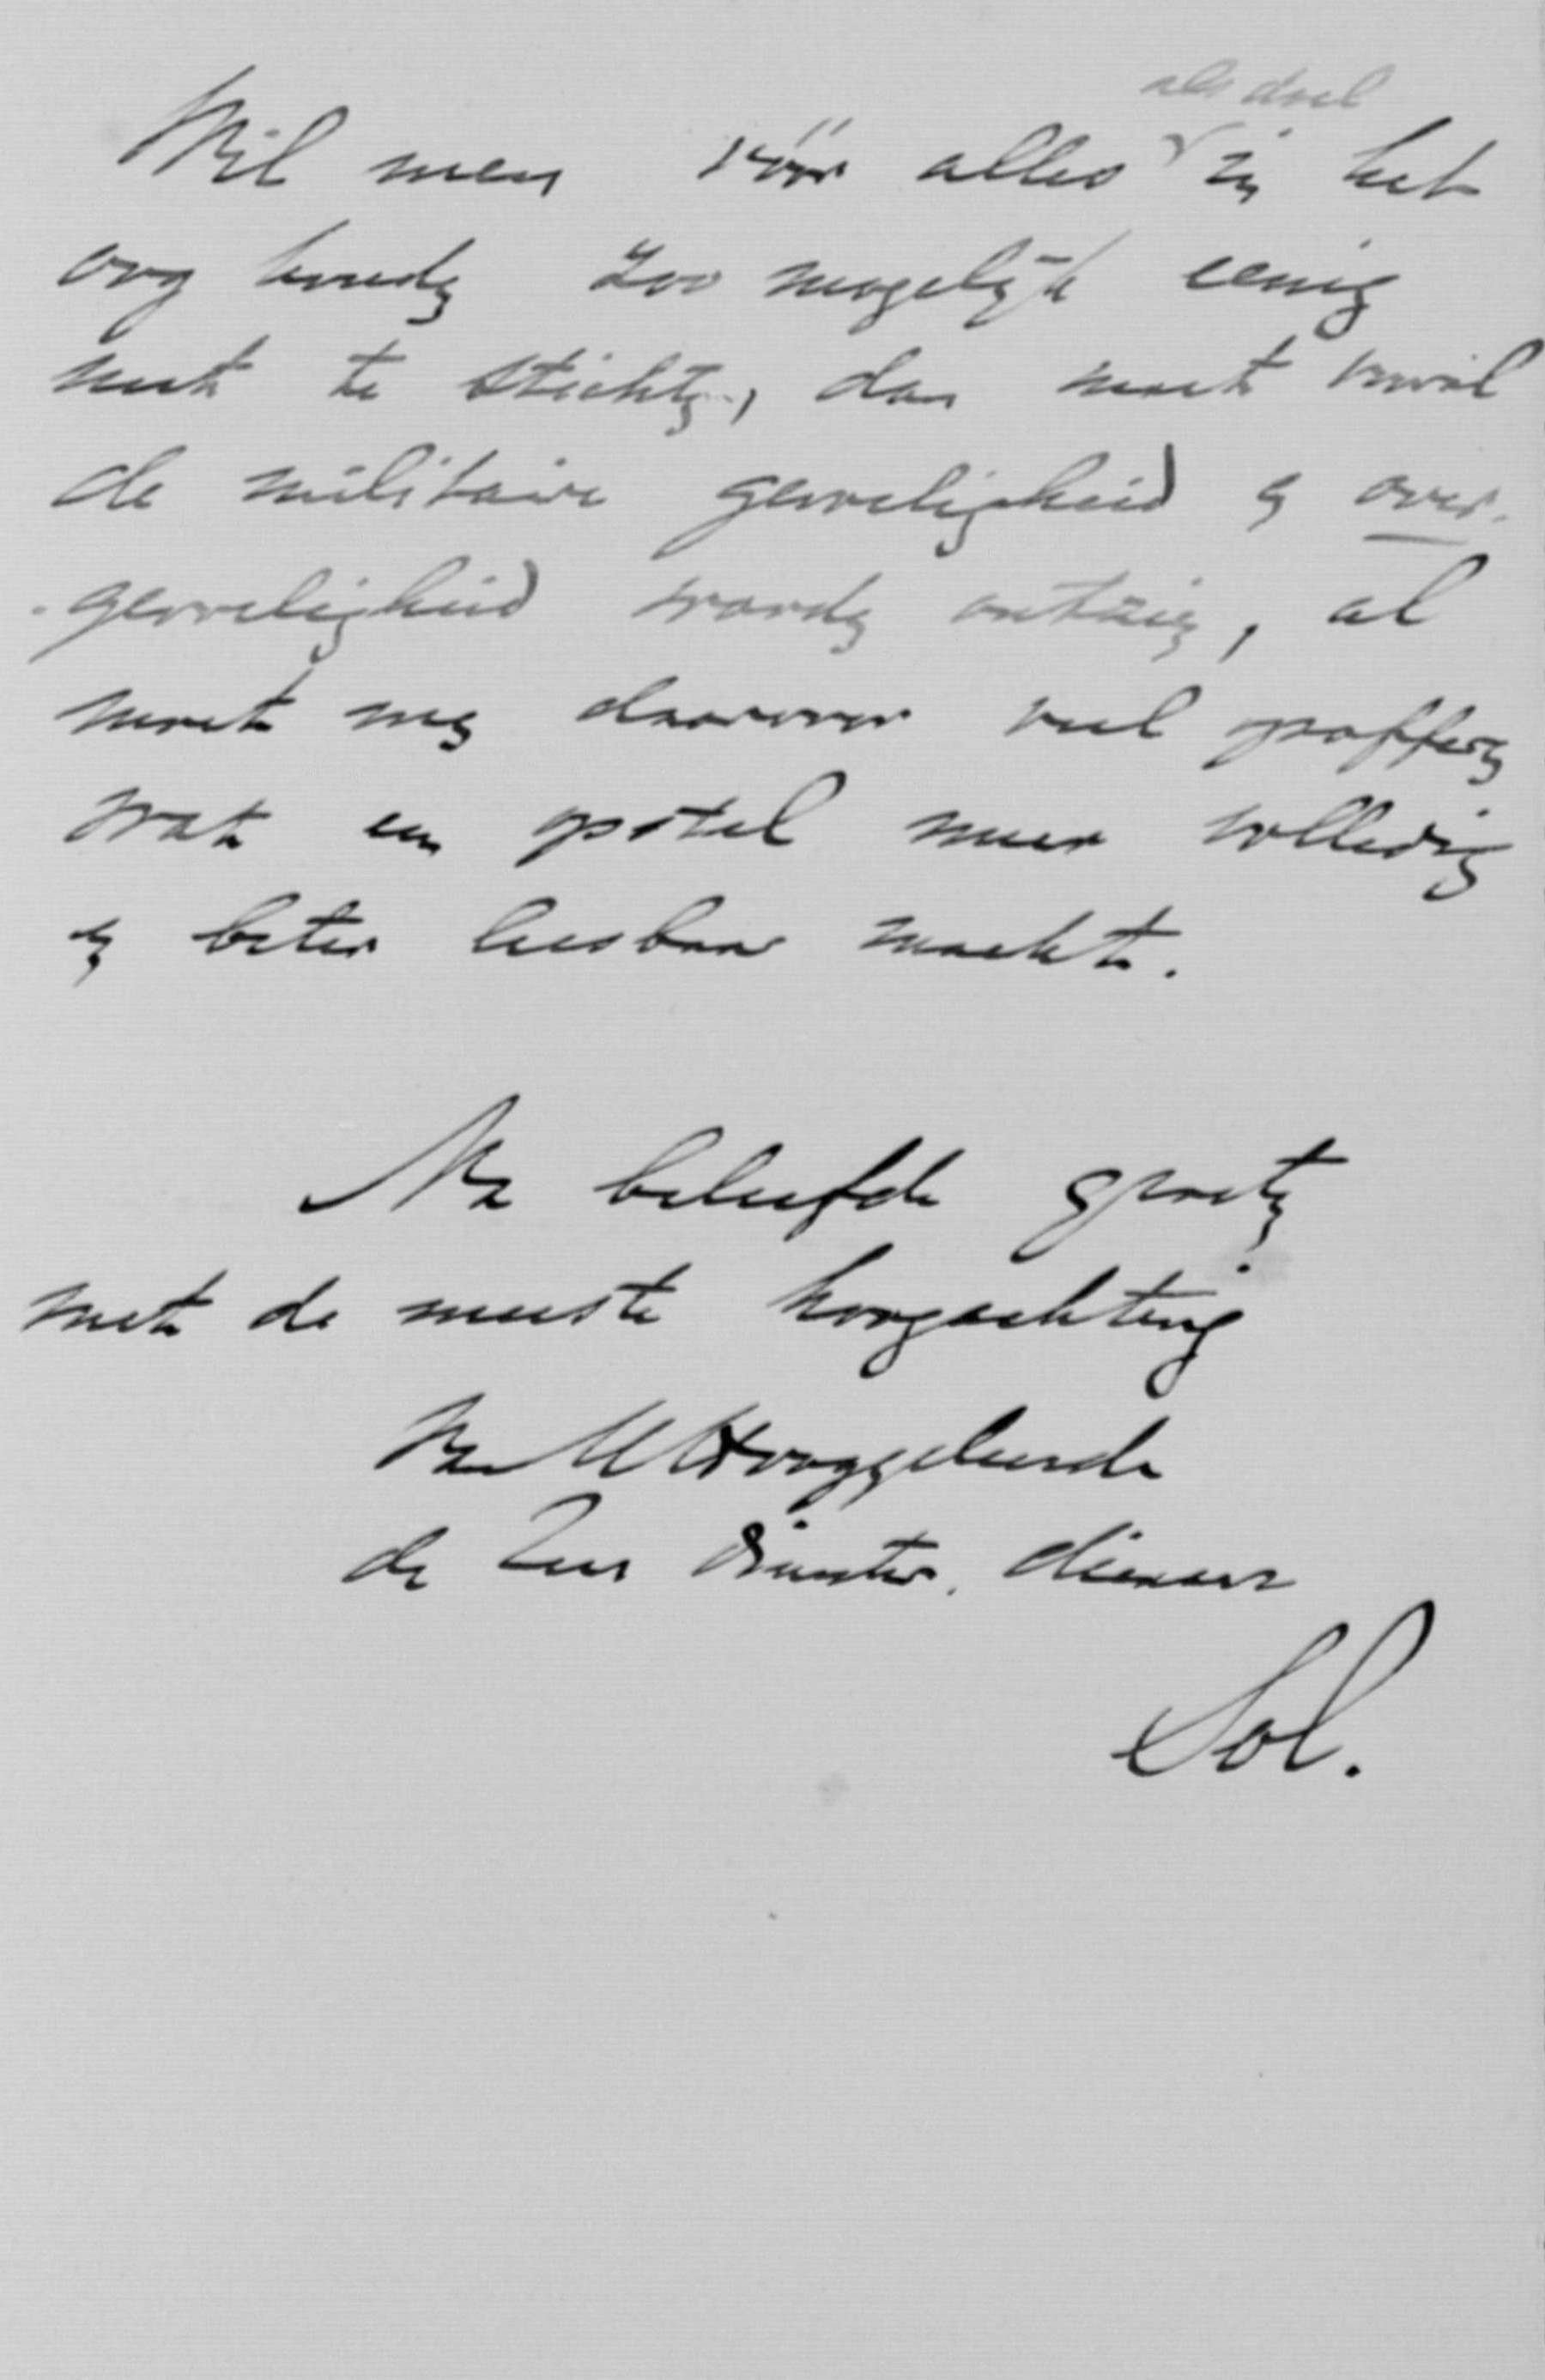 als doel
Wil men vóór alles in het
oog houden zoo mogelijk eenig
nut te stichten, dan moet vooral
de militaire gevoeligheid en over-
gevoeligheid worden ontzien, al
moet men daarvoor veel opofferen
wat een opstel meer volledig
en beter leesbaar maakt.
Na beleefde groeten
met de meeste hoogachting
Van UHooggeleerde
de Zeer Dienstw. dienaar
Sol.